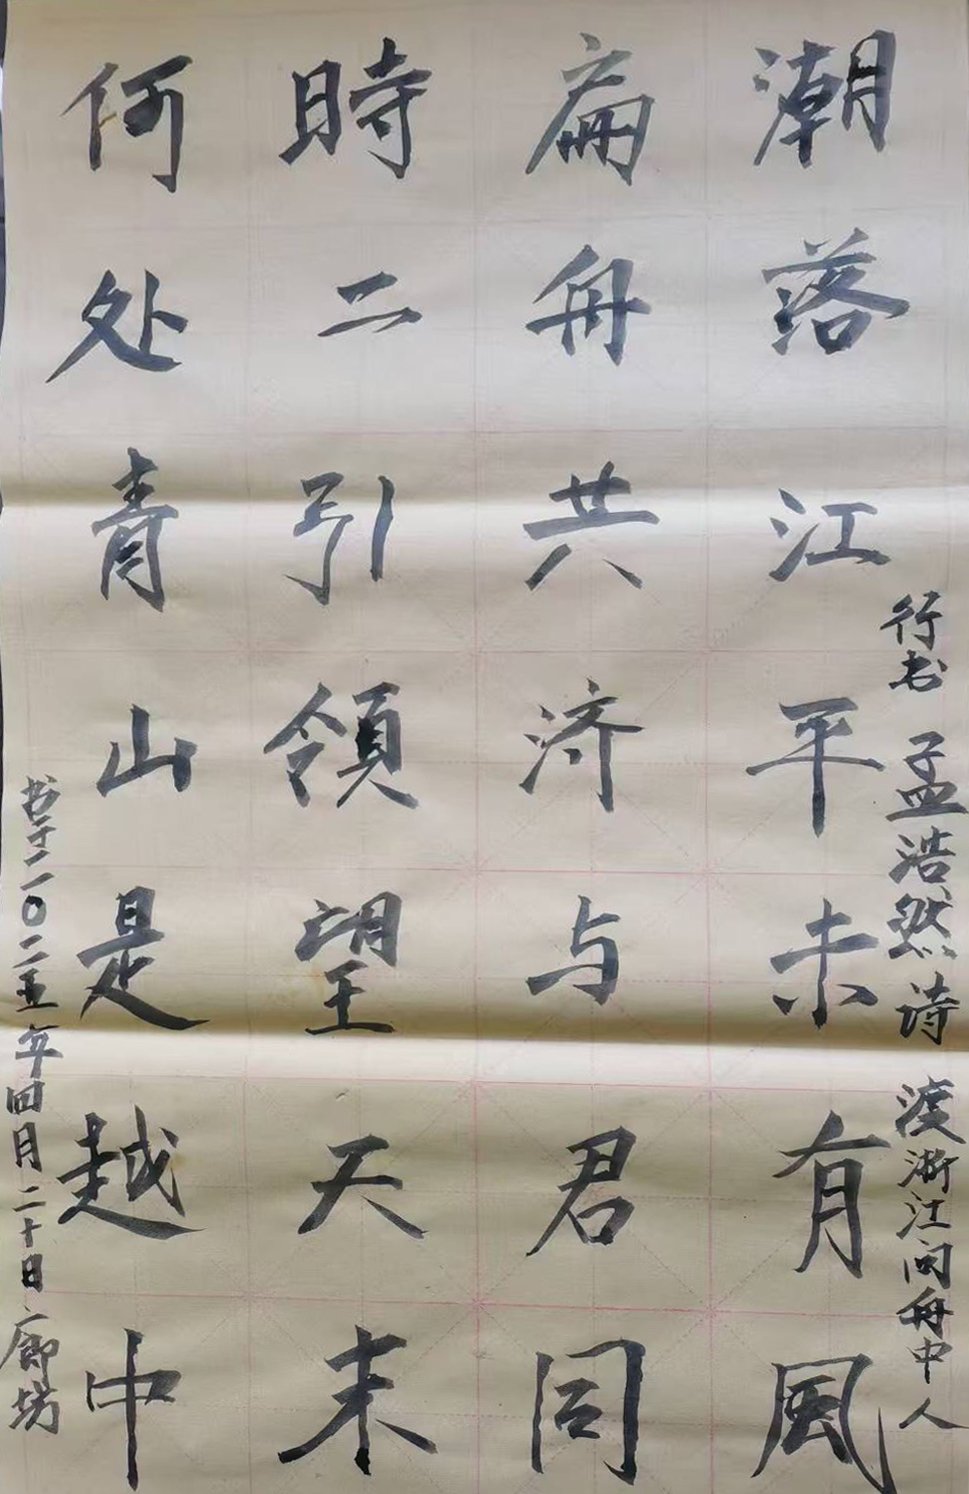 行书 孟浩然诗 渡浙江问舟中人
潮落江平未有風
扁舟共济与君同
時二引領望天末
何处青山是越中
书于二〇二五年四月二十日廊坊